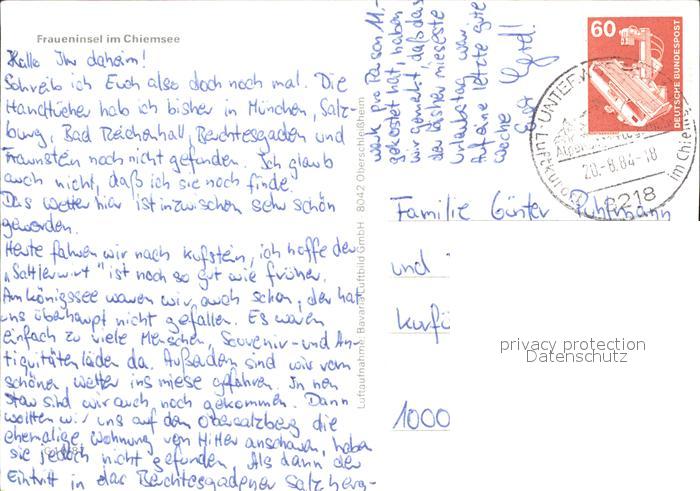 Fraueninsel im Chiemsee
Hallo Ihr daheim!
Schreib ich Euch also doch noch mal. Die
Handtücher hab ich bisher in München, Salz-
burg, Bad Reichenhall, Berchtesgaden und
Traunstein noch nicht gefunden. Ich glaub
auch nicht, daß ich sie noch finde.
Das Wetter hier ist inzwischen sehr schön
geworden.
Heute fahren wir nach Kufstein, ich hoffe der
"Sattlerwirt" ist noch so gut wie früher.
Am Königssee waren wir auch schon, der hat
uns überhaupt nicht gefallen. Es waren
einfach zu viele Menschen, Souvenir- und An-
tiquitätenläden da. Außerdem sind wir vom
schönen Wetter ins miese gefahren. In nen
Stau sind wir auch noch gekommen. Dann
wollten wir uns auf dem Obersalzberg die
ehemalige Wohnung von Hitler anschauen, haben
sie jedoch nicht gefunden. Als dann der
Eintritt in das Berchtesgadener Salzberg-
werk pro Person 11,-
gekostet hat, haben
wir gemerkt, daß das
der bisher mieseste
Urlaubstag war.
Auf eine letzte gute
Woche
Eure Gerd!
Luftaufnahme, Bavaria Luftbild GmbH 8042 Oberschleißheim
60
DEUTSCHE BUNDESPOST
Luftkurort
20.-8.84-18
8218
im Chiem
Familie Günter
und
Kurfü
1000
privacy protection
Datenschutz